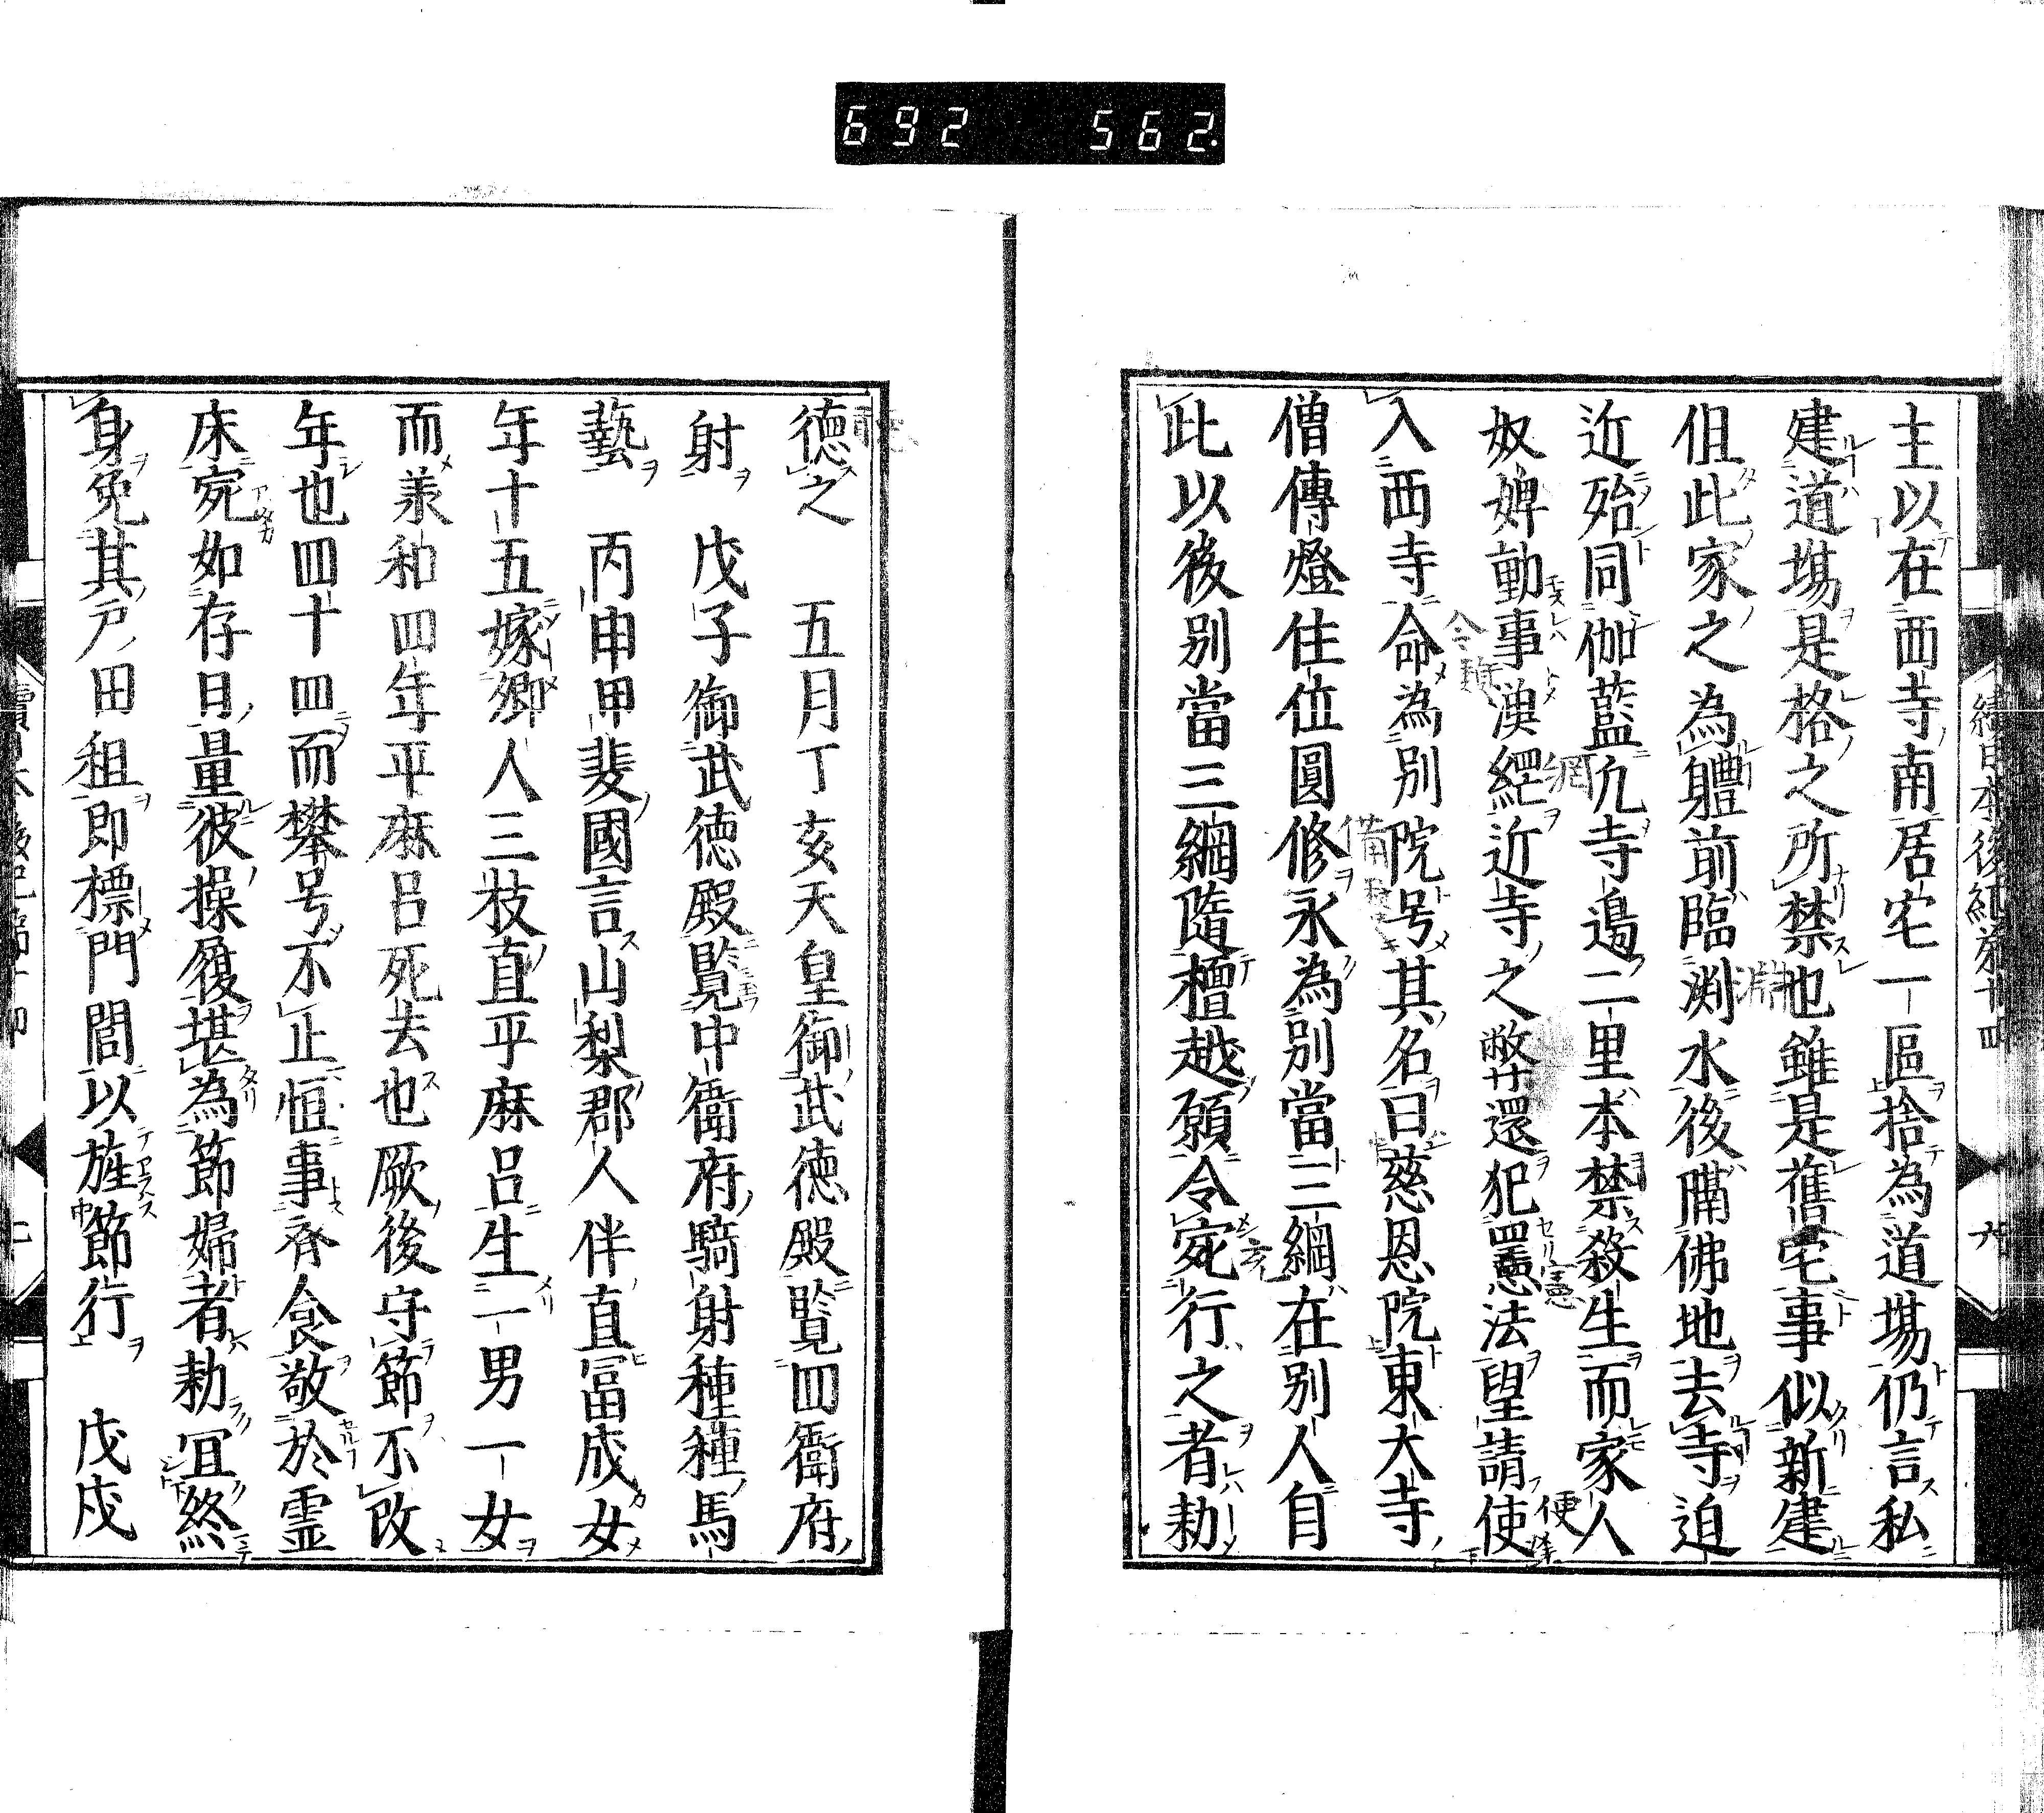 692 562
續日本後紀
主以在西寺南居宅一區捨為道場仍言私
建道場是格之所禁也雖是舊宅事似新建
但此家之為體前臨渕水後隣佛地去寺迫
近殆同伽藍凢寺邊二里本禁殺生而家人
奴婢動事漁經近寺之弊還犯憲法望請使
入西寺命為別院号其名曰慈恩院東大寺
僧傳燈住位圓修永為別當三綱在別人自
此以後別當三綱隨檀越願令宛行之者勅
德之 五月丁亥天皇御武徳殿覧四衛府
射 戊子御武徳殿覧中衛府騎射種種馬
藝 丙申甲斐國言山梨郡人伴直冨成女
年十五嫁郷人三枝直平麻呂生一男一女
而羕和四年平麻呂死去也厥後守節不改
年也四十四而攀号不止恒事齊食敬於霊
床宛如存日量彼操履堪為節婦者勅冝終
身免其戸田租即標門閭以旌節行 戊戌